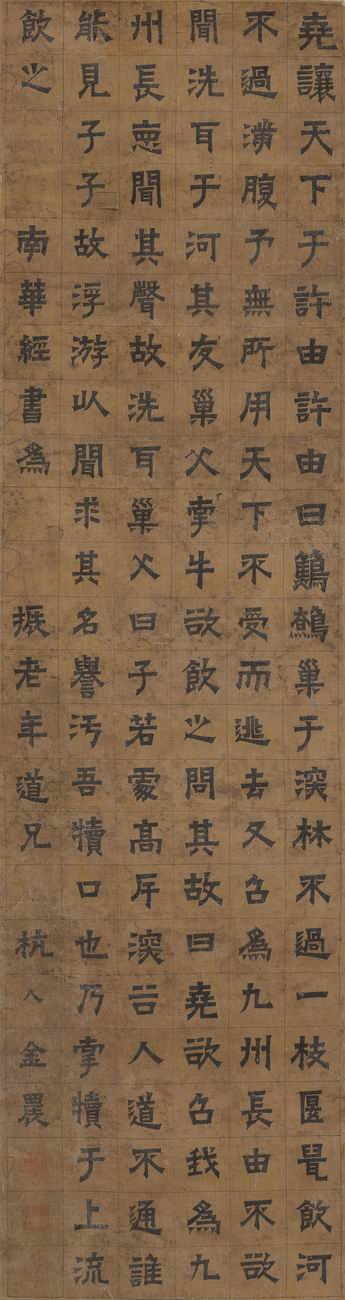 堯讓天下于許由許由曰鷦鷯巢于深林不過一枝偃鼠飲河
不過滿腹予無所用天下不受而逃去又召爲九州長由不欲
聞洗耳于河其友巢父牽牛欲飲之問其故曰堯欲召我爲九
州長惡聞其聲故洗耳巢父曰子若處高岸深谷人道不通誰
能見子子故浮游以聞求其名譽污吾犢口也乃牽犢于上流
飲之 南華經書爲 振老年道兄 杭人金農